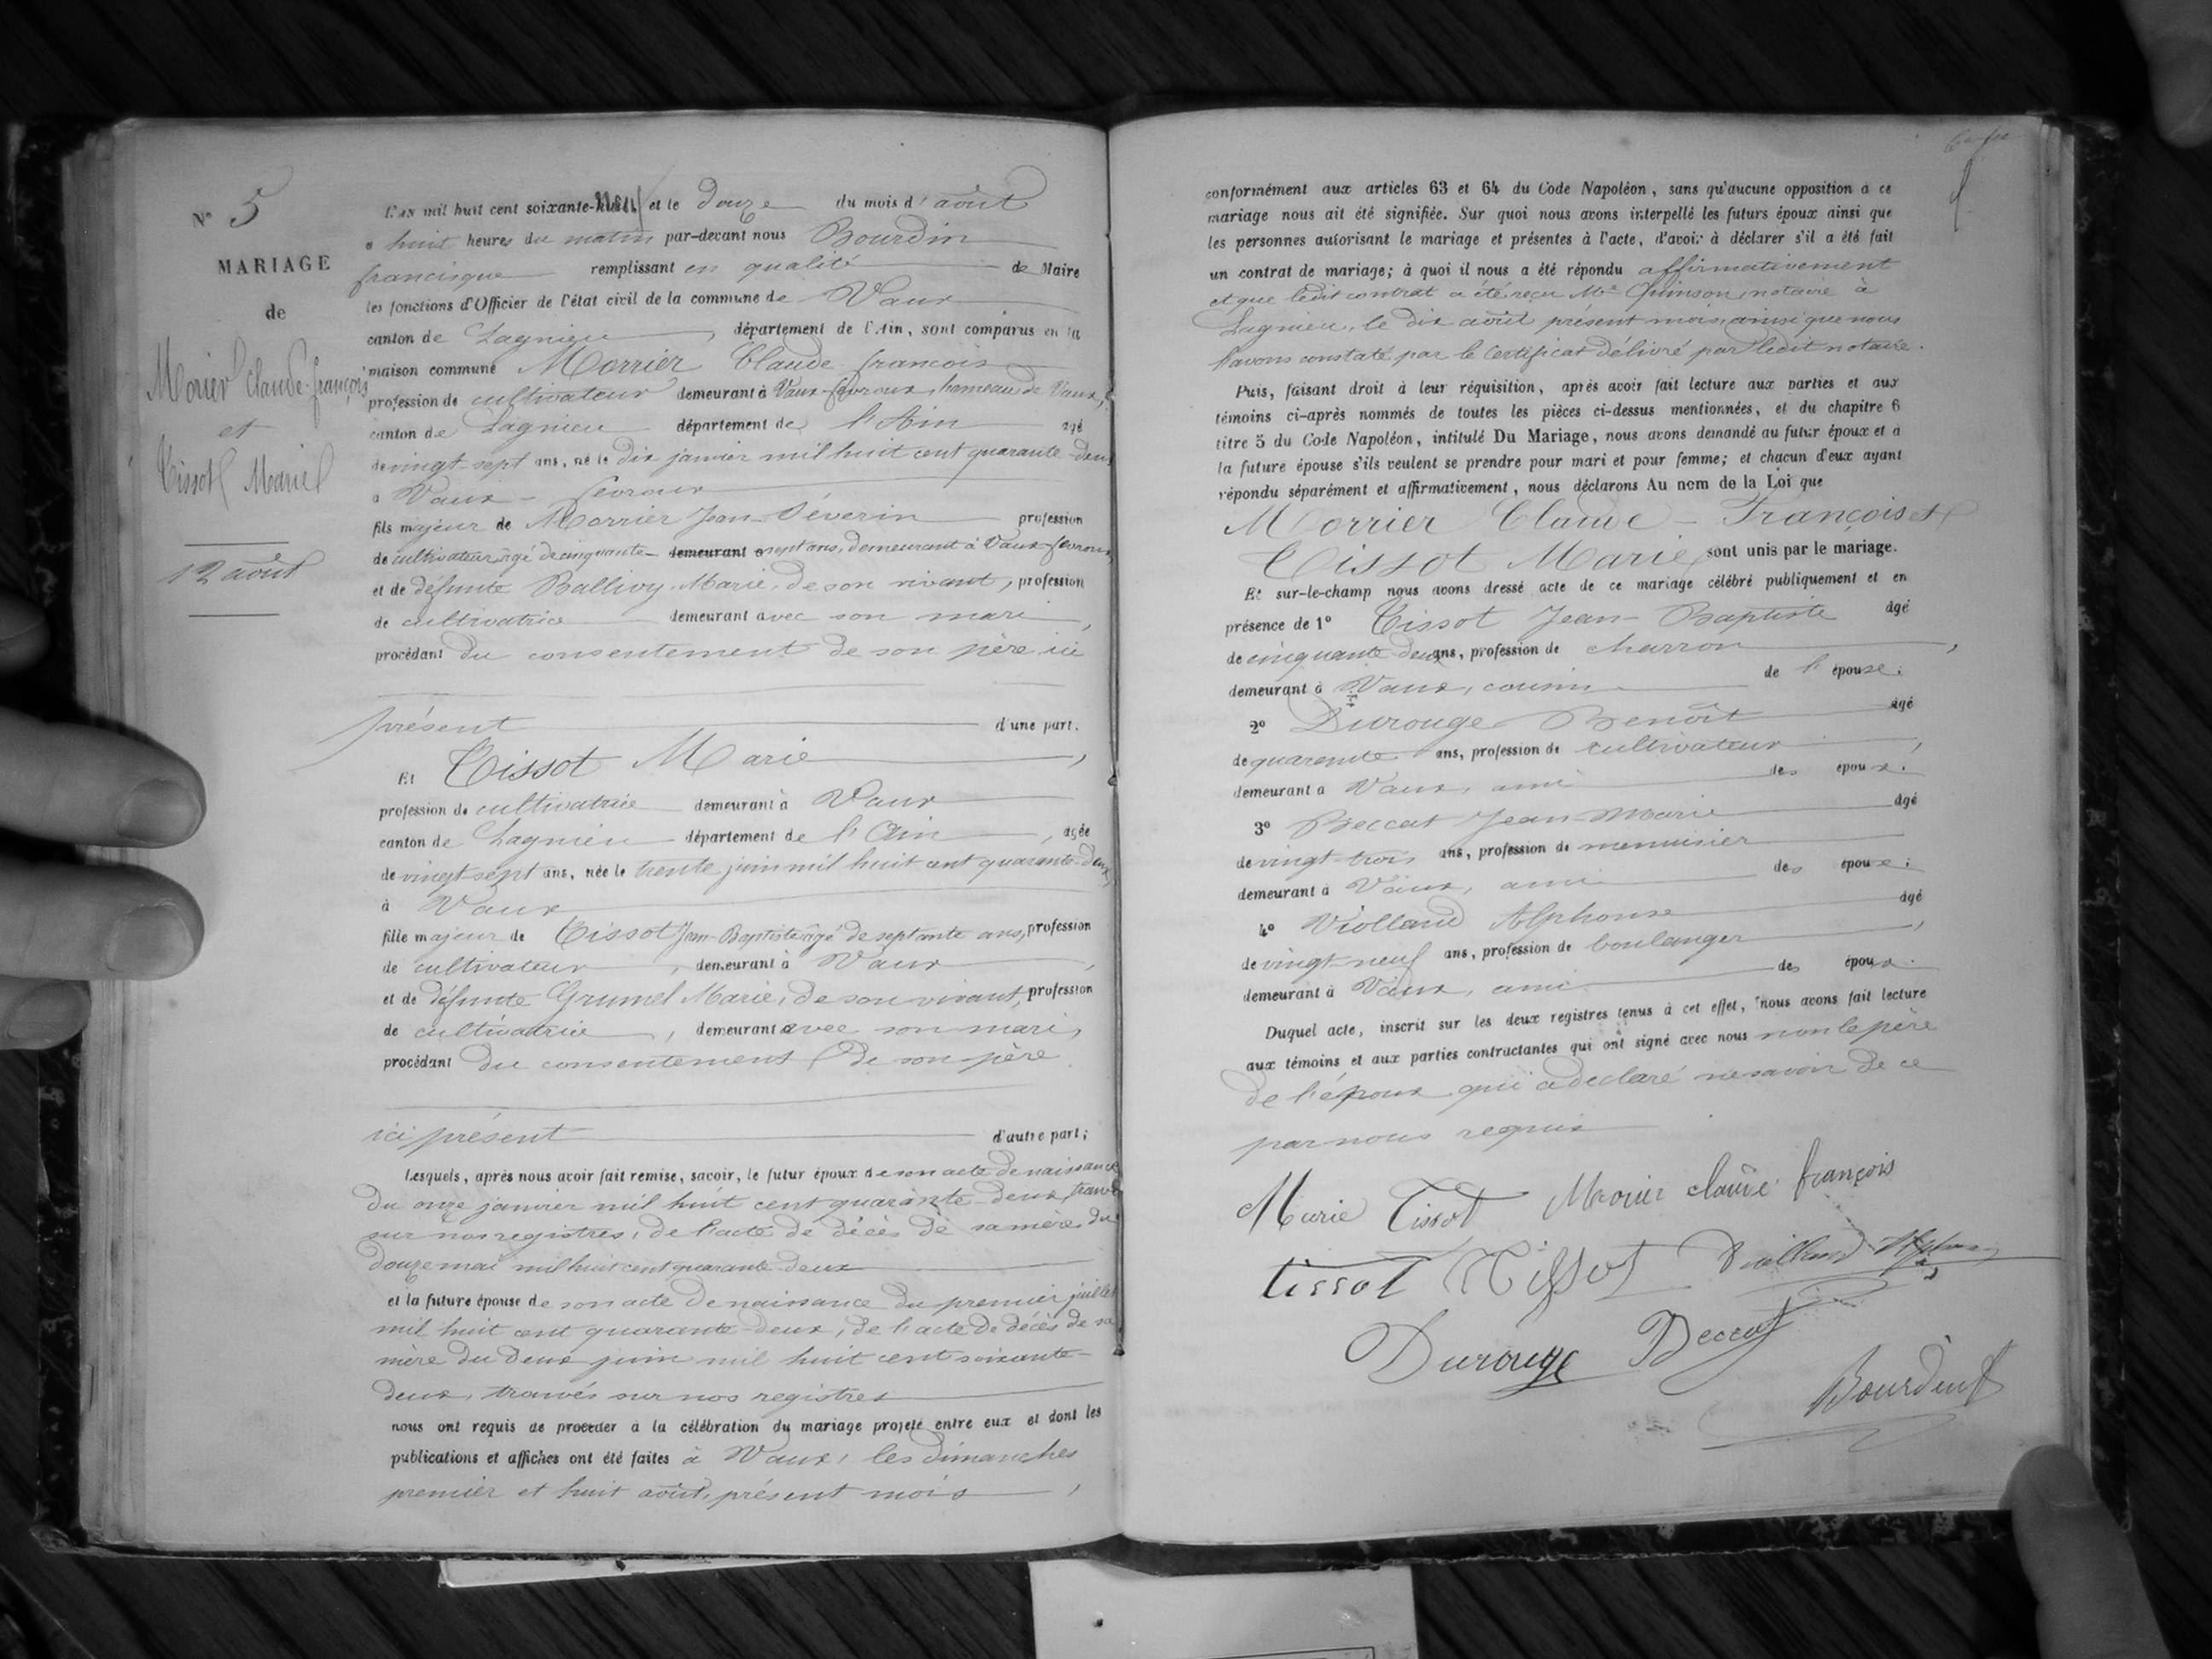 N° 5
MARIAGE
de
Morier Claude-françois
et
Tissot Marie
12 août
L'an mil huit cent soixante-neuf et le Douze du mois d'août
a huit heures du matin par-devant nous Bourdin
francisque remplissant en qualité de Maire
les fonctions d'Officier de l'état civil de la commune de Vaux
canton de Lagnieu, département de l'Ain, sont comparus en la
maison commune Morrier Claude françois
profession de cultivateur demeurant à Vaux-fevroux, hameau de Vaux,
canton de Lagnieu département de l'Ain agé
de vingt-sept ans, né le dix janvier mil huit cent quarante-deux
a Vaux-fevroux
fils majeur de Morrier Jean-Séverin profession
de cultivateur âgé de cinquante- demeurant a sept ans, demeurant à Vaux-fevroux,
et de défunte Ballivy Marie, de son vivant, profession
de cultivatrice demeurant avec son mari,
procédant du consentement de son père ici
présent d'une part.
Et Tissot Marie,
profession de cultivatrice demeurant à Vaux
canton de Lagnieu département de l'Ain, agée
de vingt-sept ans, née le trente juin mil huit cent quarante-deux,
à Vaux
fille majeur de Tissot Jean-Baptiste âgé de septante ans, profession
de cultivateur, demeurant à Vaux,
et de défunte Grumel Marie, de son vivant, profession
de cultivatrice, demeurant avec son mari,
procédant du consentement de son père
ici présent d'autre part;
Lesquels, après nous avoir fait remise, savoir, le futur époux de son acte de naissance
du onze janvier mil huit cent quarante-deux, trouvé
sur nos registres, de l'acte de décès de sa mère du
douze mai mil huit cent quarante-deux
et la future épouse de son acte de naissance du premier juillet
mil huit cent quarante-deux, de l'acte de décès de sa
mère du deux juin mil huit cent soixante-
deux, trouvés sur nos registres
nous ont requis de proceder à la célébration du mariage projeté entre eux et dont les
publications et affiches ont été faites à Vaux, les dimanches
premier et huit août, présent mois,
conformément aux articles 63 et 64 du Code Napoléon, sans qu'aucune opposition à ce
mariage nous ait été signifiée. Sur quoi nous avons interpellé les futurs époux ainsi que
les personnes autorisant le mariage et présentes à l'acte, d'avoir à déclarer s'il a été fait
un contrat de mariage; à quoi il nous a été répondu affirmativement
et que ledit contrat a été reçu Me Quinson, notaire à
Lagnieu, le dix août présent mois, ainsi que nous
l'avons constaté par le certificat délivré par ledit notaire.
Puis, faisant droit à leur réquisition, après avoir fait lecture aux parties et aux
témoins ci-après nommés de toutes les pièces ci-dessus mentionnées, et du chapitre 6
titre 5 du Code Napoléon, intitulé Du Mariage, nous avons demandé au futur époux et a
la future épouse s'ils veulent se prendre pour mari et pour femme; et chacun d'eux ayant
répondu séparément et affirmativement, nous déclarons Au nom de la Loi que
Morrier Claude-François et
Tissot Marie sont unis par le mariage.
Et sur-le-champ nous avons dressé acte de ce mariage célébré publiquement et en
présence de 1° Tissot Jean-Baptiste âgé
de cinquante-deux ans, profession de charron,
demeurant à Vaux, cousin de l'épouse.
2° Durouge Benoît agé
de quarante ans, profession de cultivateur,
demeurant a Vaux, ami des époux.
3° Beccat Jean-Marie âgé
de vingt-trois ans, profession de menuisier
demeurant à Vaux, ami des époux.
4° Violland Alphonse âgé
de vingt-neuf ans, profession de boulanger,
demeurant à Vaux, ami des époux.
Duquel acte, inscrit sur les deux registres tenus à cet effet, nous avons fait lecture
aux témoins et aux parties contractantes qui ont signé avec nous non le père
de l'époux qui a déclaré ne savoir de ce
par nous requis
Marie Tissot Morier claude françois
tissot Tissot Violland Alphonse
Durouge Beccat
Bourdin f